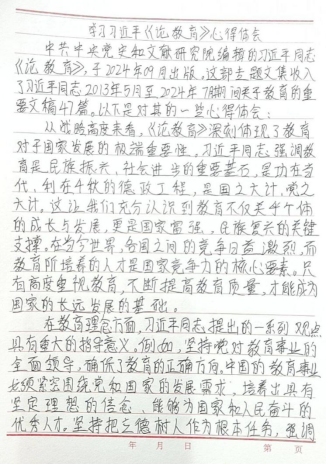 学习习近平《论教育》心得体会
中共中央党史和文献研究院编辑的习近平同志
《论教育》,于2024年09月出版,这部专题文集收入
了习近平同志2013年5月至2024年7月期间关于教育的重
要文稿47篇。以下是对其的一些心得体会:
从战略高度来看,《论教育》深刻体现了教育
对于国家发展的极端重要性。习近平同志强调教
育是民族振兴、社会进步的重要基石,是功在当
代,利在千秋的德政工程,是国之大计,党之
大计。这让我们充分认识到教育不仅关乎个体
的成长与发展,更是国家富强、民族复兴的关键
支撑,在当今世界,各国之间的竞争日益激烈,而
教育所培养的人才是国家竞争力的核心要素。只
有高度重视教育,不断提高教育质量,才能成为
国家的长远发展的基础。
在教育理念方面,习近平同志提出的一系列观点
具有重大的指导意义。例如,坚持党对教育事业的
全面领导,确保了教育的正确方向。中国的教育事业
必须紧密围绕党和国家的发展需求,培养出具有
坚定理想的信念、能够为国家和人民奋斗的
优秀人才。坚持把立德树人作为根本任务,强调
年 月 日
第 页